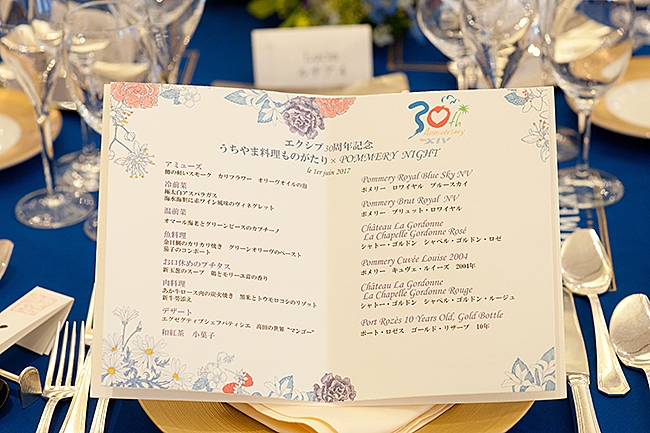 30th
Anniversary
XIV
エクシブ30周年記念
うちやま料理ものがたり × POMMERY NIGHT
le 1er juin 2017
アミューズ
鰹の軽いスモーク カリフラワー オリーヴオイルの泡
冷前菜
極太白アスパラガス
海水雲丹にホワイン風味のヴィネグレット
温前菜
オマール海老とグリーンピースのカプチーノ
魚料理
金目鯛のカリカリ焼き グリーンオリーヴのペースト
茄子のコンポート
お口休めのプチタス
新玉葱のスープ 鶏とモリーユ茸の香り
肉料理
あか牛ロース肉の炭火焼き 黒米とトウモロコシのリゾット
新牛蒡添え
デザート
エグゼクティブシェフパティシエ 真田の世界 "マンゴー"
和紅茶 小菓子
Pommery Royal Blue Sky NV
ポメリー ロワイヤル ブルースカイ
Pommery Brut Royal NV
ポメリー ブリュット・ロワイヤル
Château La Gordonne
La Chapelle Gordonne Rosé
シャトー・ゴルドン シャペル・ゴルドン・ロゼ
Pommery Cuvée Louise 2004
ポメリー キュヴェ・ルイーズ 2004年
Château La Gordonne
La Chapelle Gordonne Rouge
シャトー・ゴルドン シャペル・ゴルドン・ルージュ
Port Rozès 10 Years Old, Gold Bottle
ポート・ロゼス ゴールド・リザーブ 10年